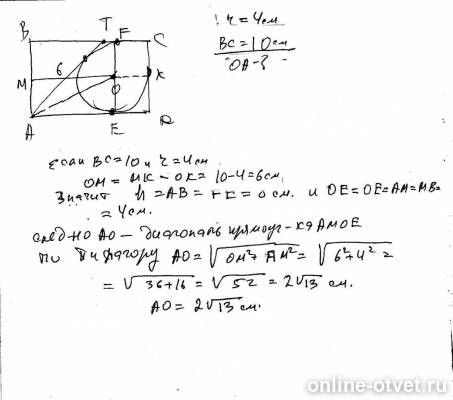 B T F C
M 6 O K
A E D
r = 4см
BC = 10см
OA - ?
Если BC = 10 и r = 4см
OM = MK - OK = 10 - 4 = 6см
Значит h = AB = FE = см. и OE = OE = AM = MB =
= 4см.
AO — диагональ прямоуг-ка AMOE
По Пифагору AO = √OM² + AM² = √6² + 4² =
= √36+16 = √52 = 2√13 см.
AO = 2√13 см.
online-otvet.ru